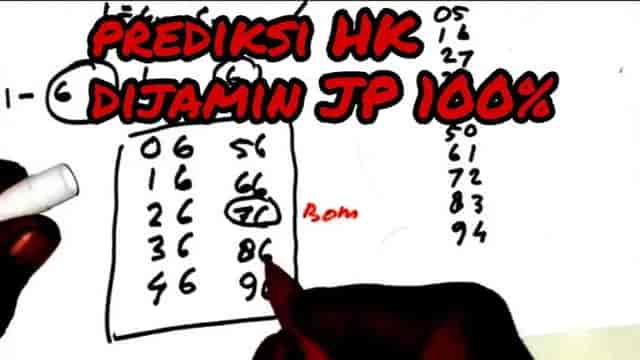 PREDIKSI HK
DIJAMIN JP 100%
1 - 6
06 56
16 66
26 76 Bom
36 86
46 9
05
16
27
50
61
72
83
94